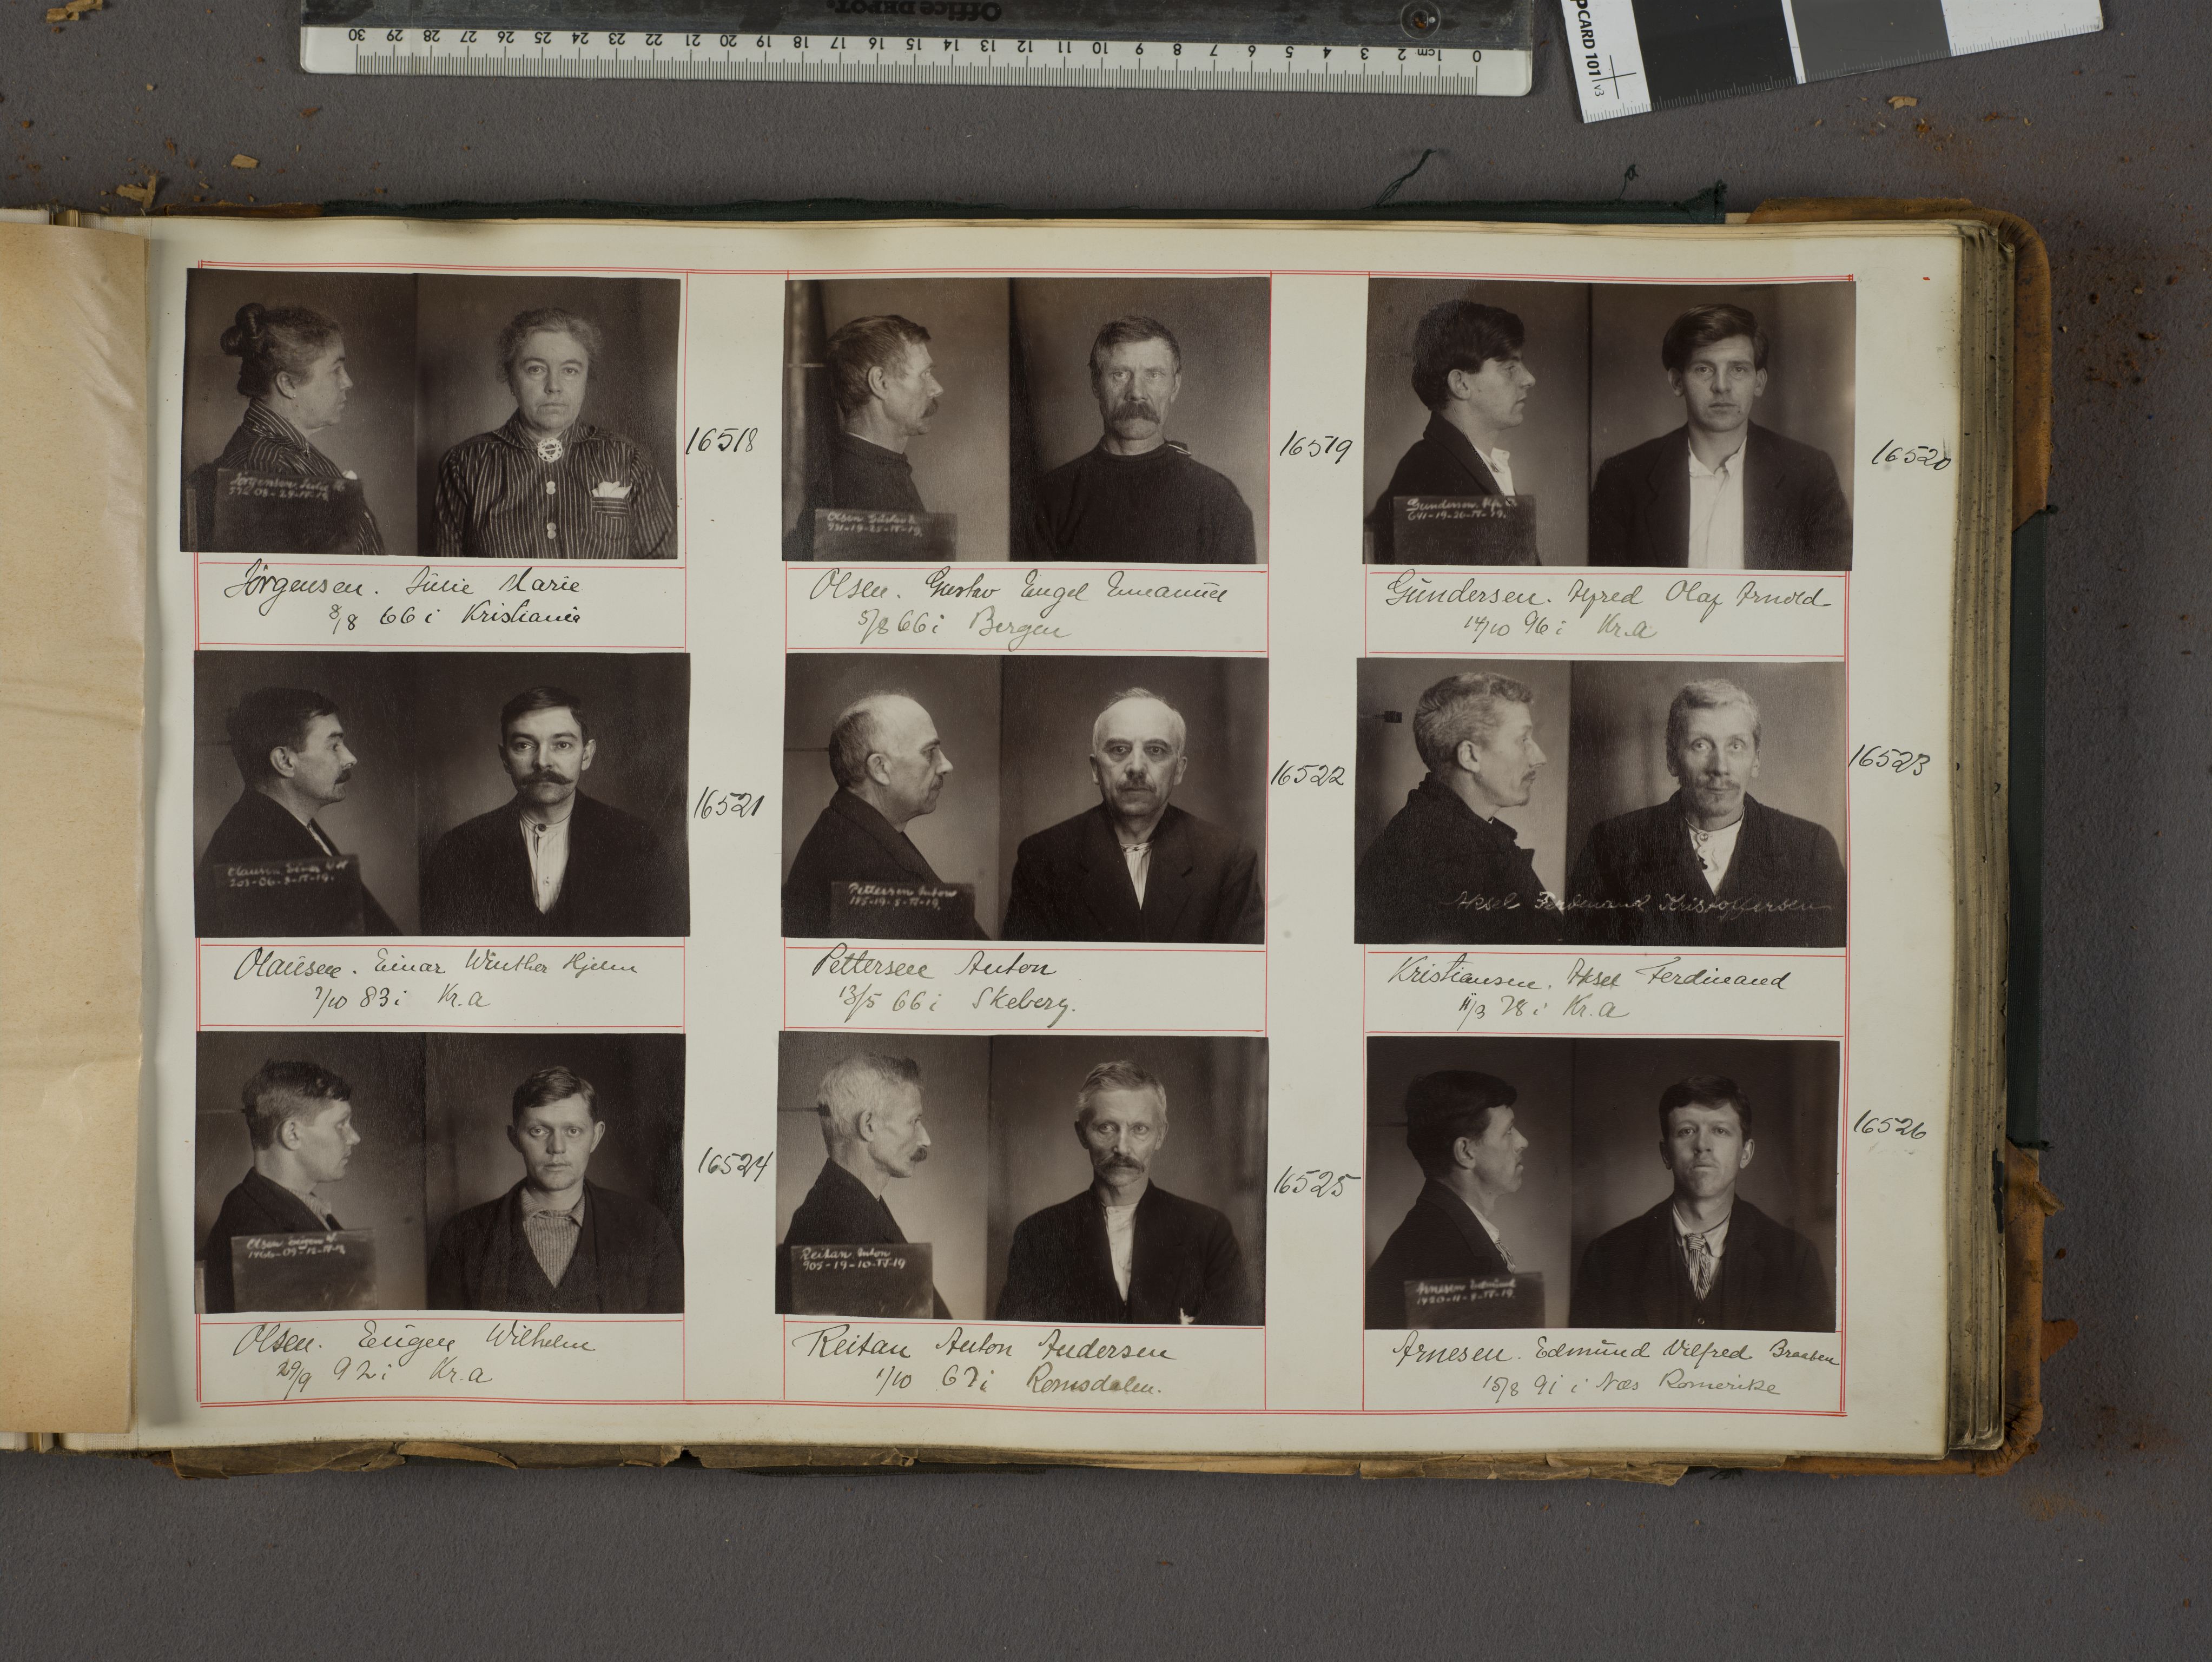 Office DEPOT.
30 29 28 27 26 25 24 23 22 21 20 19 18 17 16 15 14 13 12 11 10 9 8 7 6 5 4 3 2 1cm 0
PCARD 101 v3
16518
Jörgensen. Julie Marie
8/8 66 i Kristiania
Olsen Gustav E.
931-19-25-IV-19.
16519
Olsen. Gustav Engel Emanuel
5/8 66 i Bergen
Gundersen. Alfr. O.
641-19-26-IV-19.
16520
Gundersen. Alfred Olaf Arnold
14/10 96 i Kr.a
16521
Olausen. Einar Winther Hjelm
7/10 83 i Kr.a
Pettersen Anton
16522
Pettersen Anton
13/5 66 i Skeberg.
Aksel Ferdinand Kristoffersen
16523
Kristiansen. Aksel Ferdinand
11/3 78 i Kr.a
16524
Olsen. Eugen Wilhelm
29/9 92 i Kr.a
Reitan Anton
905-19-10-IV-19
16525
Reitan Anton Andersen
1/10 67 i Romsdalen.
Arnesen Edmund
16526
Arnesen. Edmund Vilfred Braaten
15/8 91 i Næs Romerike